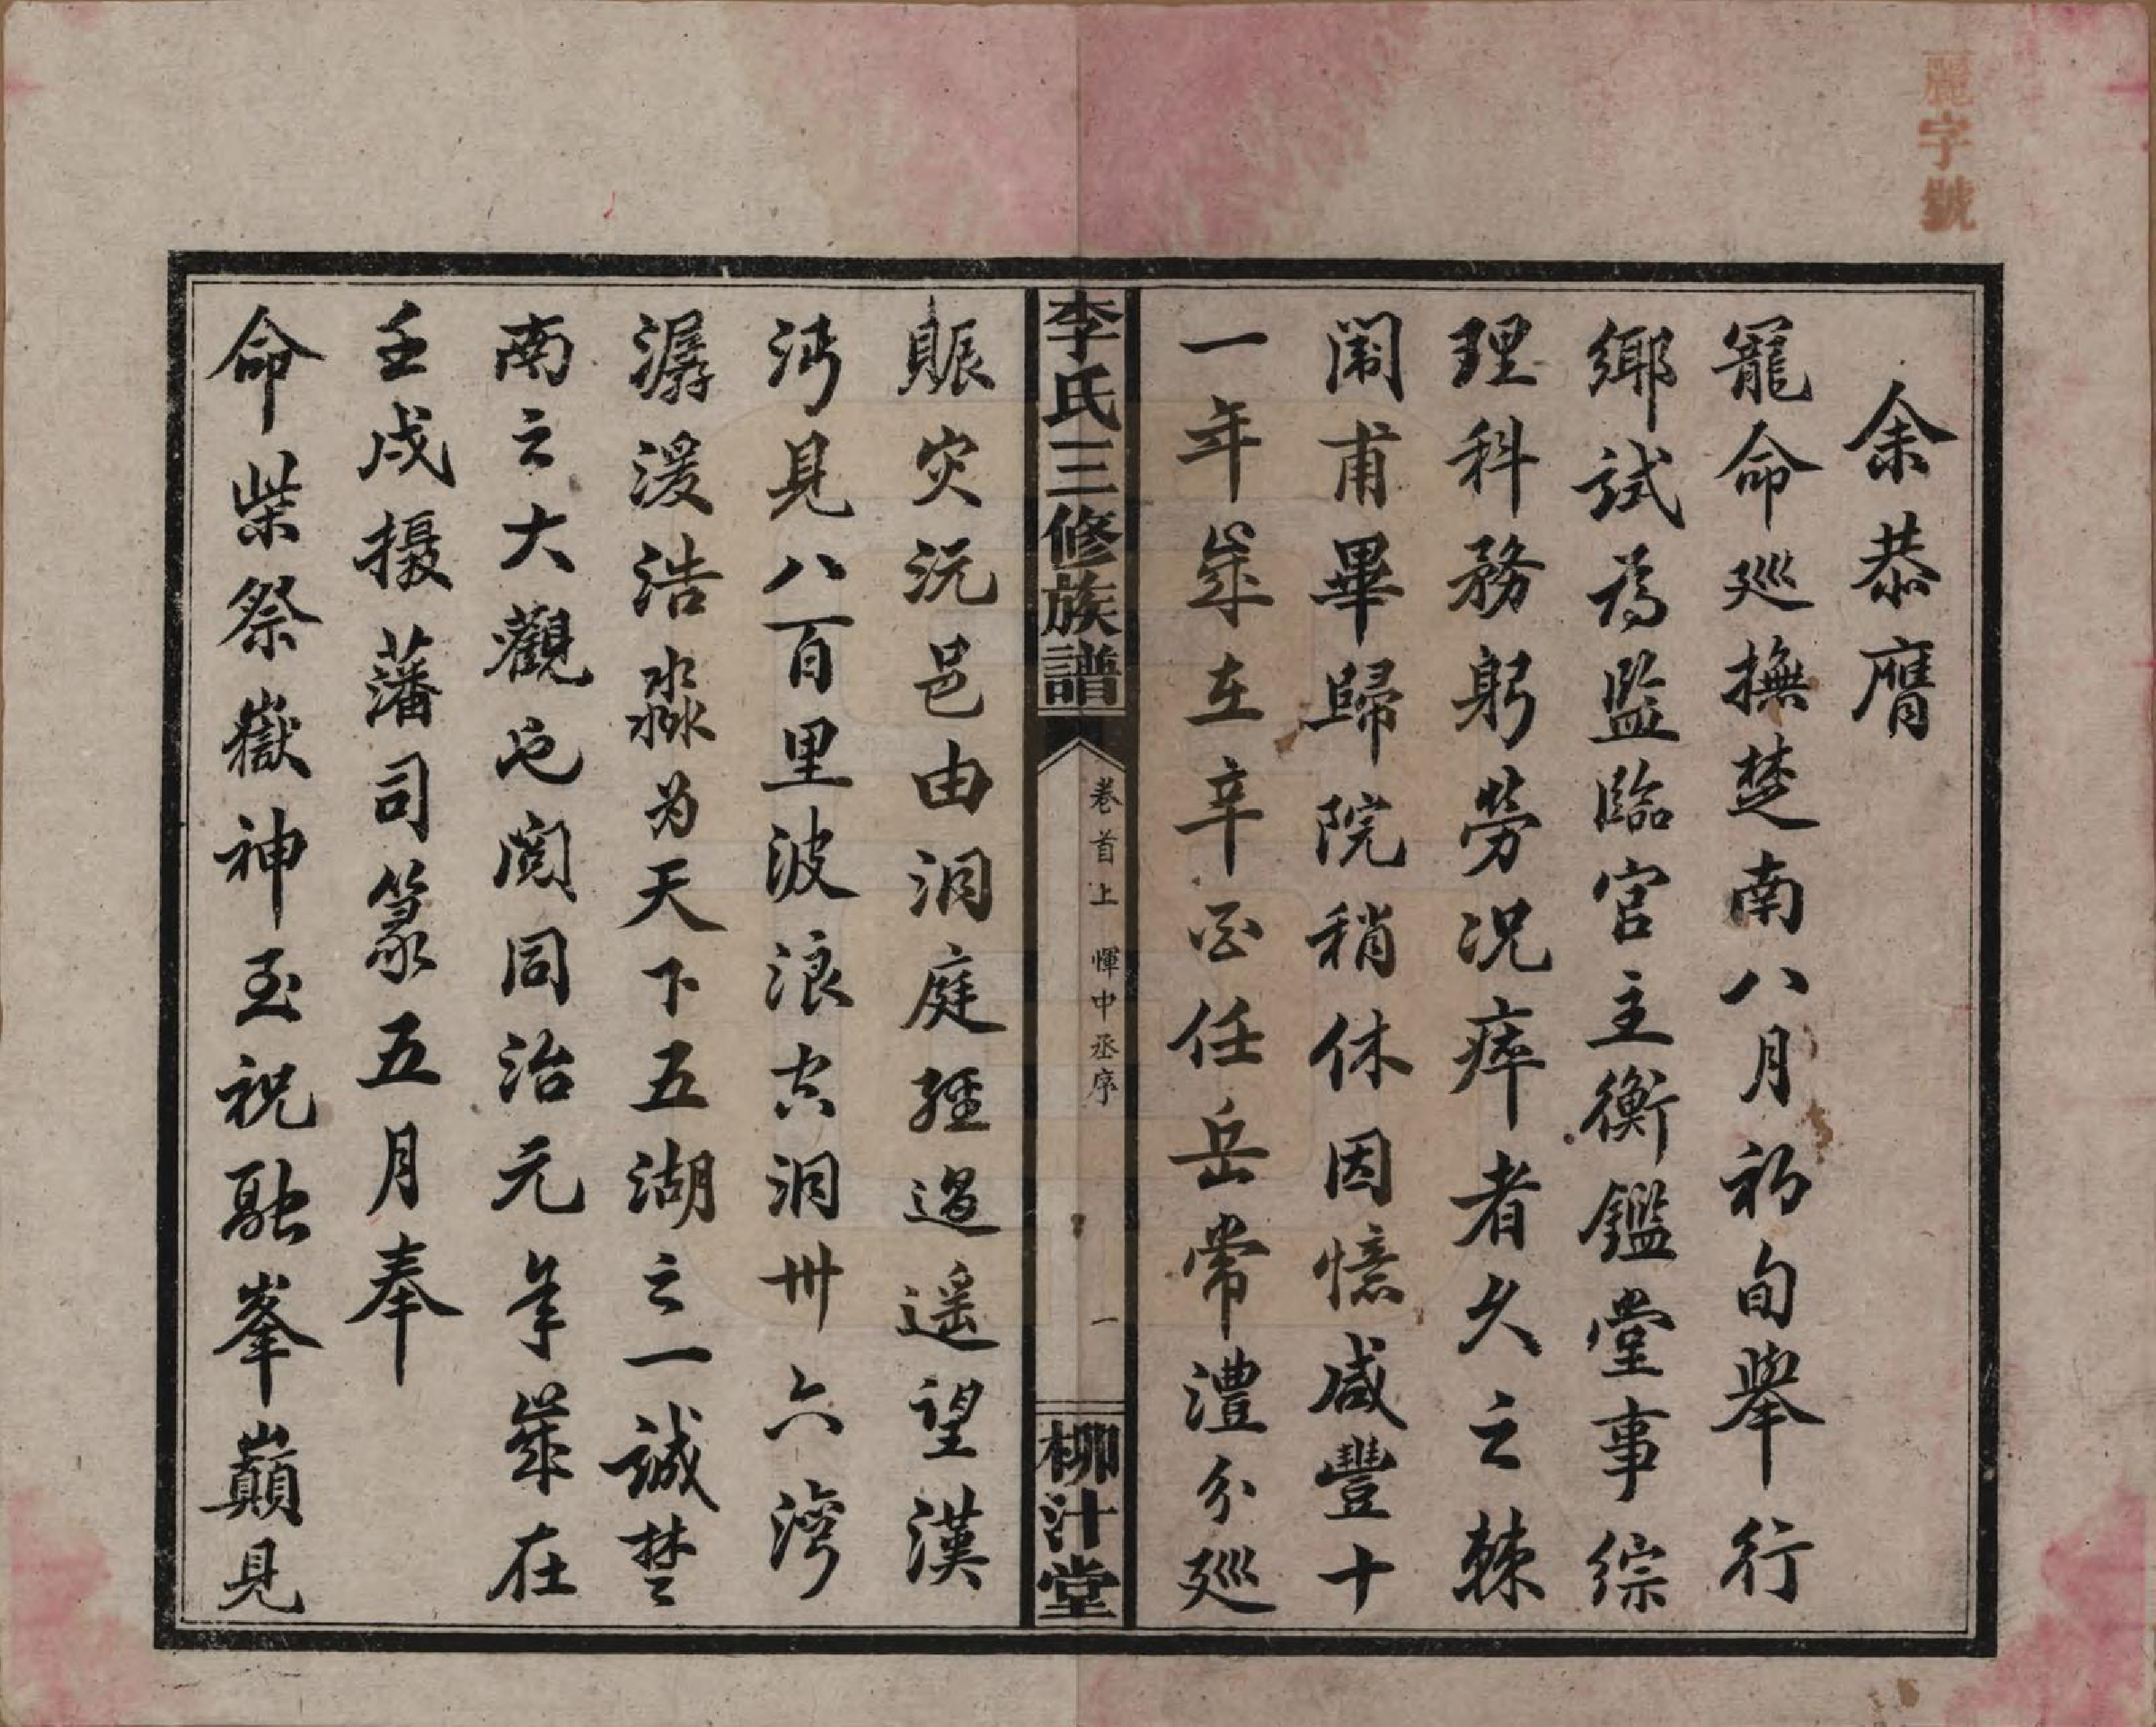 麗字號
余恭膺
寵命巡撫楚南八月初旬舉行
鄉試為監臨官主衡鑑堂事綜
理科務躬勞況瘁者久之棘
闈甫畢歸院稍休因憶咸豐十
一年歲在辛酉任岳常澧分巡
李氏三修族譜
卷首上 惲中丞序 一
柳汁堂
賑災沅邑由洞庭經過遥望漢
沔見八百里波浪宏洞卅六灣
潺湲浩淼为天下五湖之一誠楚
南之大觀也閱同治元年歲在
壬戌摄藩司篆五月奉
命柴祭嶽神至祝融峯巔見